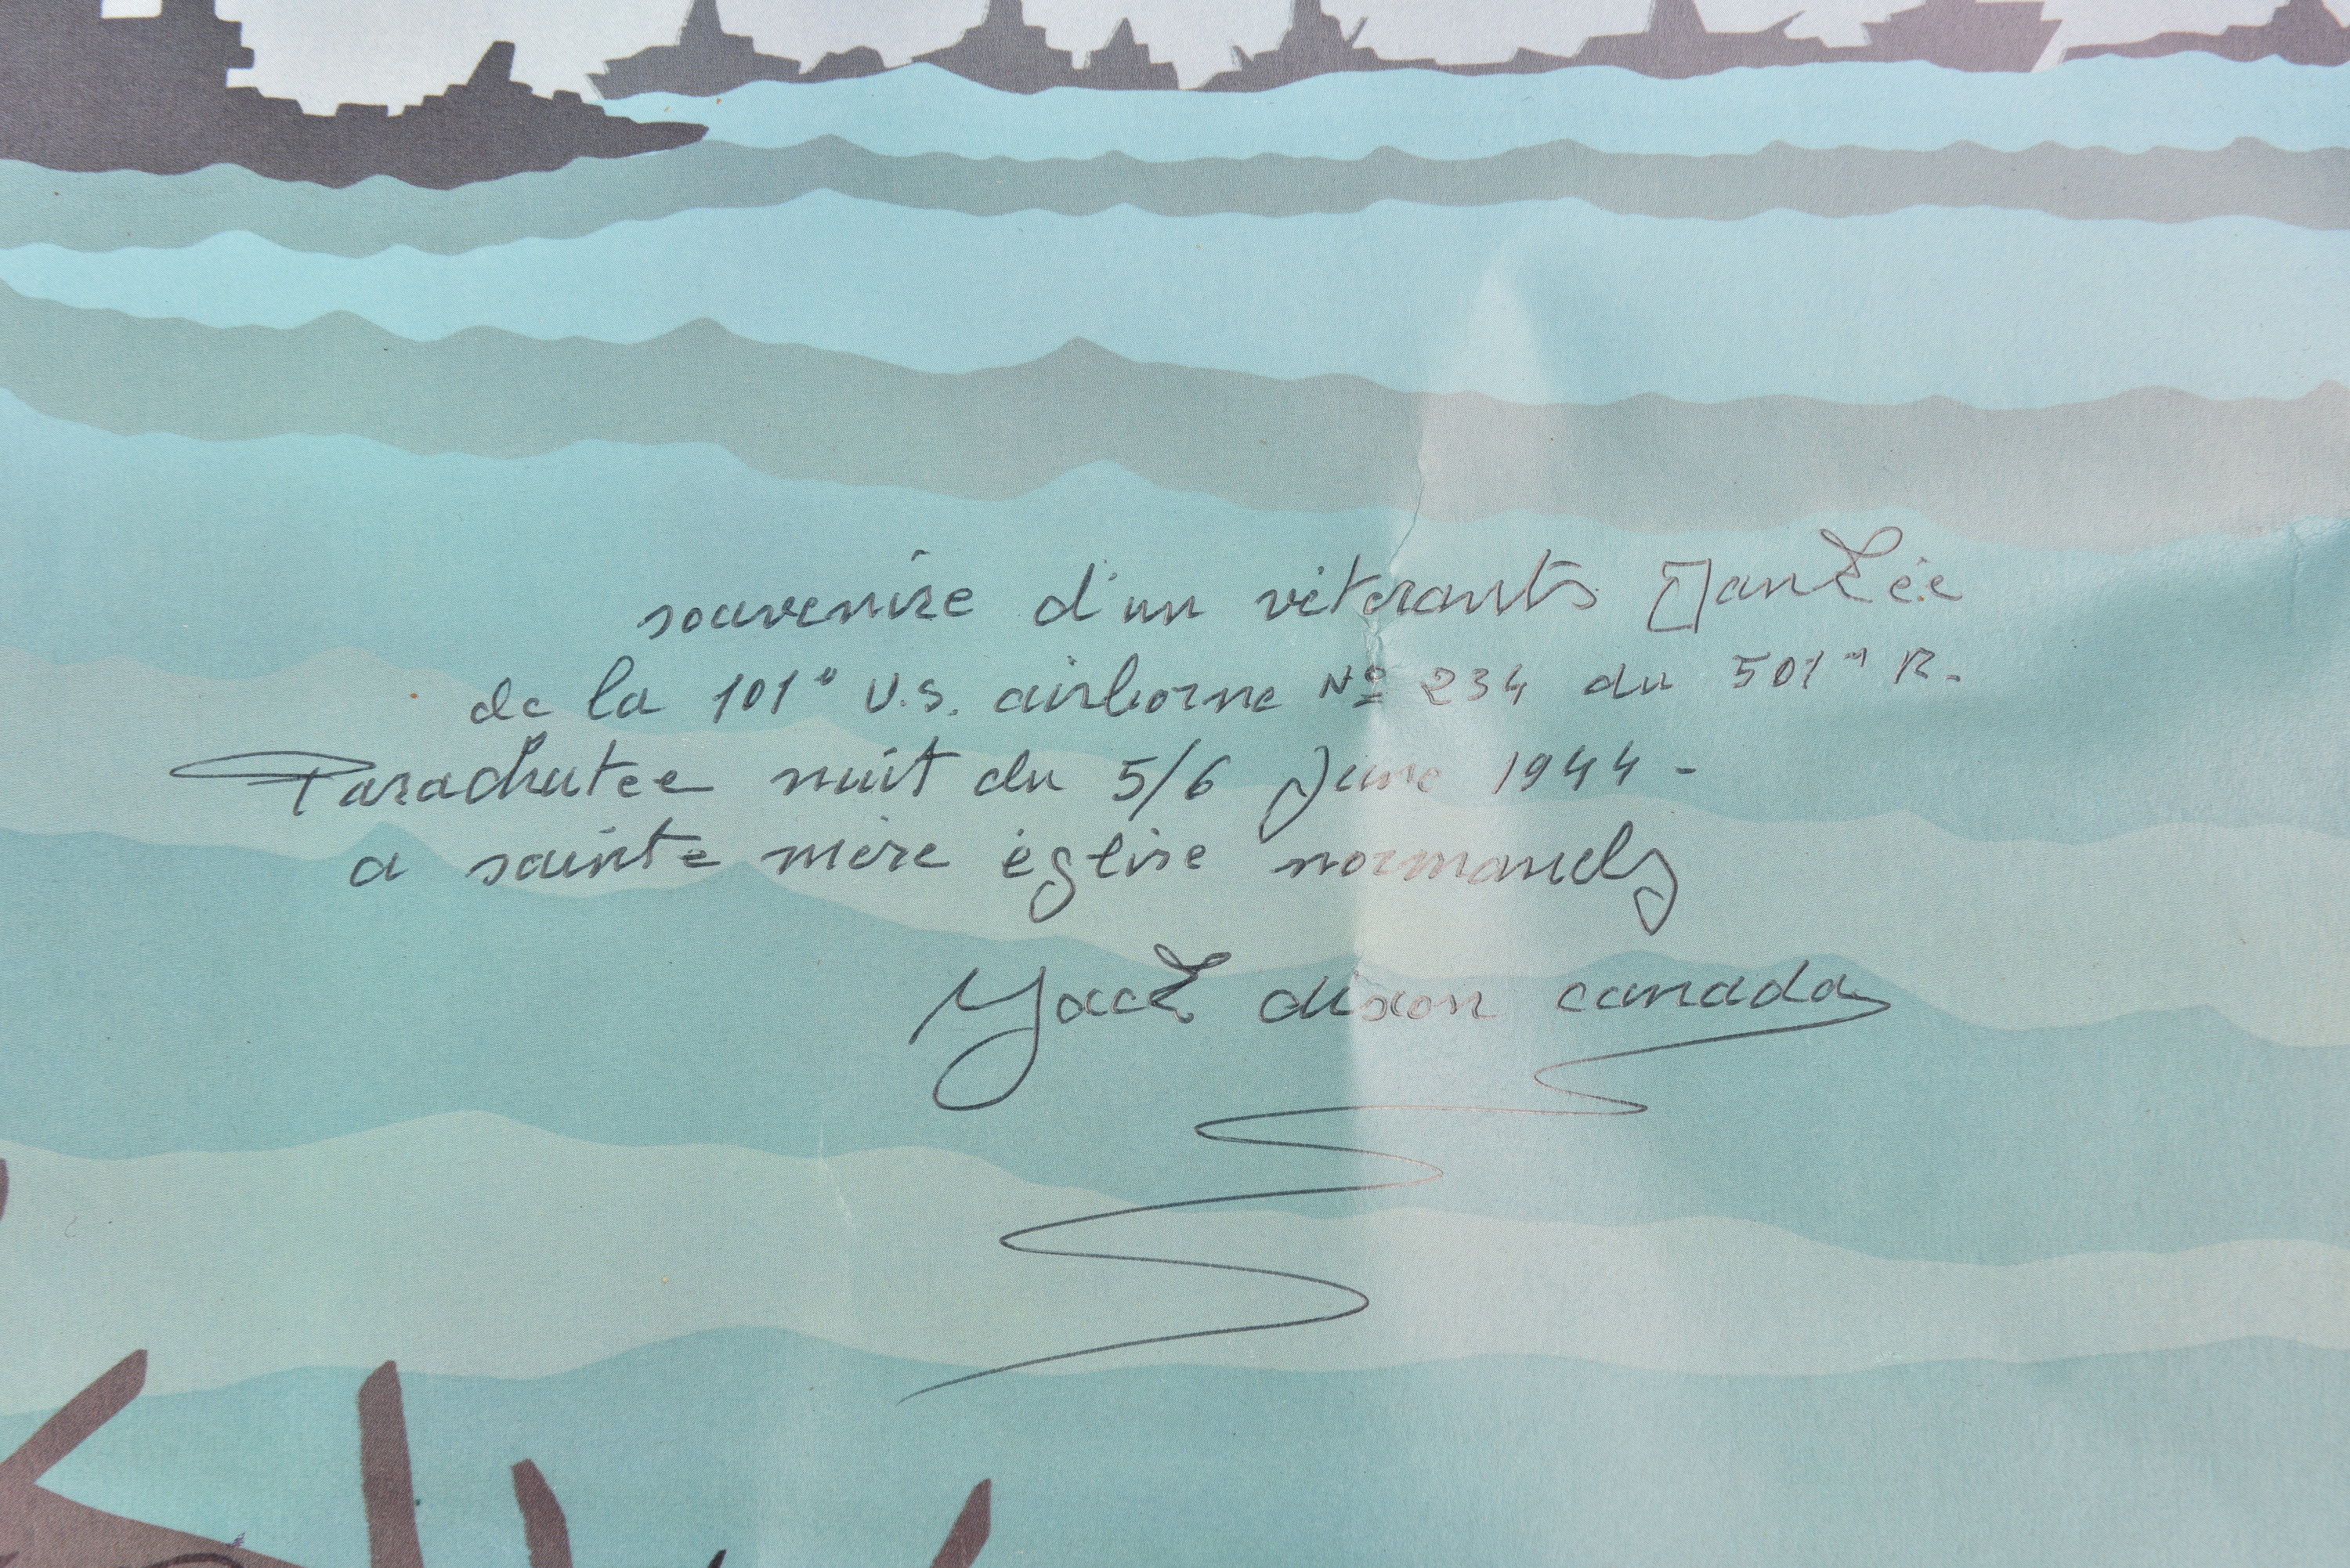 souvenire d'un véterants Yankée
de la 101° U.S. airborne Nº 234 du 501" R.
Parachutee nuit du 5/6 June 1944 -
a sainte mère église normandy
Yack dixon canada